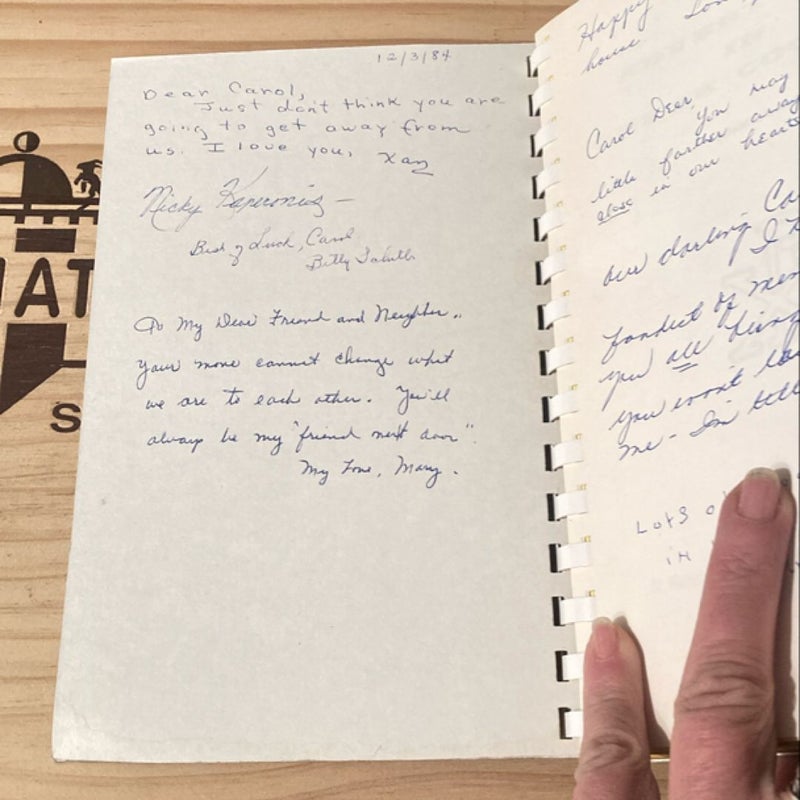 12/3/84
Dear Carol,
Just don't think you are
going to get away from
us. I love you, Xan
Nicky
Best of Luck, Carol
Betty
To My Dear Friend and Neighbor..
Your move cannot change what
we are to each other. You'll
always be my "friend next door".
My Love, Mary.
Happy
house
Carol Dear,
You may
little farther away
close in our hearts
our darling
I
fondest of
you all
you won't
me - I'm
Lots
in
AT
S